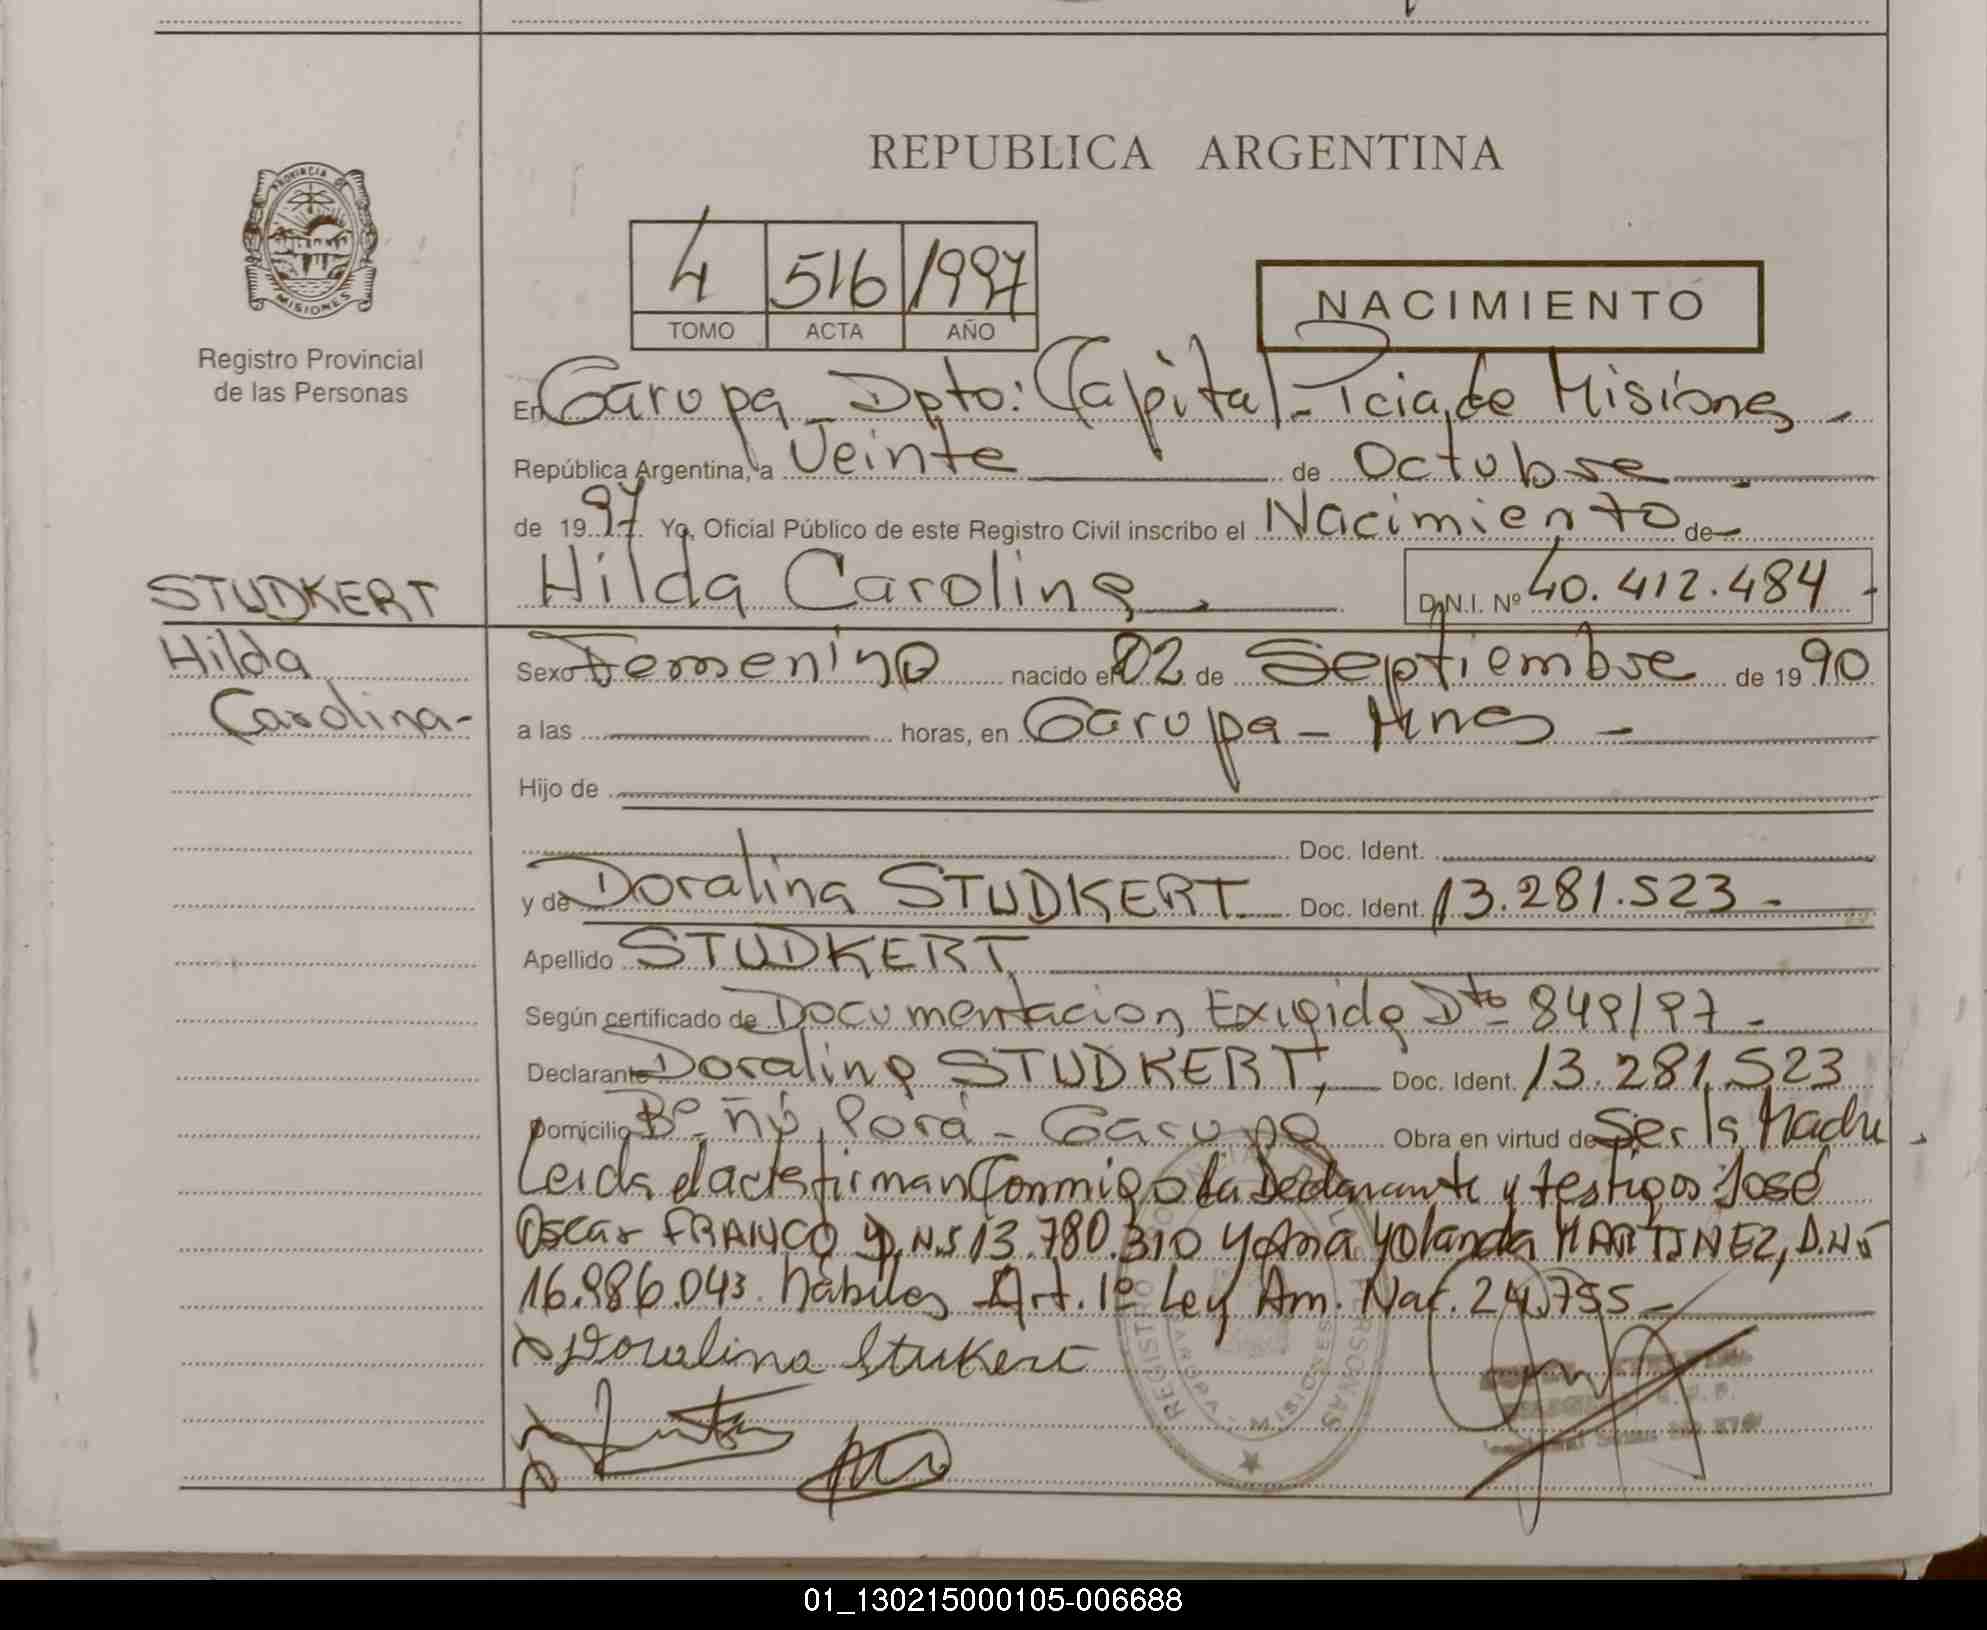 REPUBLICA ARGENTINA
PROVINCIA DE
MISIONES
Registro Provincial
de las Personas
4 516 1997
TOMO ACTA AÑO
NACIMIENTO
En Garupa - Dpto: Capital - Pcia, de Misiones -
República Argentina, a Veinte de Octubre
de 19 97 Yo, Oficial Público de este Registro Civil inscribo el Nacimiento de
Hilda Carolina D.N.I. Nº 40.412.484 -
STUDKERT
Hilda
Carolina -
Sexo Femenino nacido el 02 de Septiembre de 19 90
a las horas, en Garupa - Mnes -
Hijo de
Doc. Ident.
y de Doralina STUDKERT Doc. Ident. 13.281.523 -
Apellido STUDKERT
Según certificado de Documentacion Exigida Dto 849/97 -
Declarante Doralina STUDKERT, Doc. Ident. 13.281.523
Domicilio Bº ñú Porá - Garupa Obra en virtud de Ser la Madre
Leida el acta firman Conmigo la Declarante y testigos José
Oscar FRANCO D.N.I 13.780.310 y Ana Yolanda MARTINEZ, D.N.I
16.986.043 habiles Art. 1º Ley Am. Nac. 24.755 -
Doralina Stukert
REGISTRO PROVINCIAL PERSONAS
GARUPA - MISIONES
01_130215000105-006688